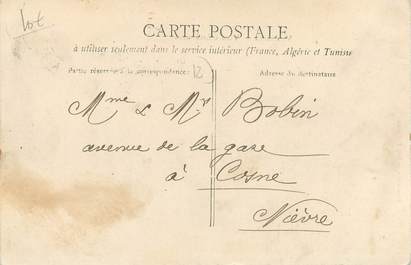 Lot
CARTE POSTALE
à utiliser seulement dans le service intérieur (France, Algérie et Tunisie
Partie réservée à la correspondance
Adresse du destinataire
12
Mme & Mr Bobin
avenue de la gare
à Cosne
Nièvre